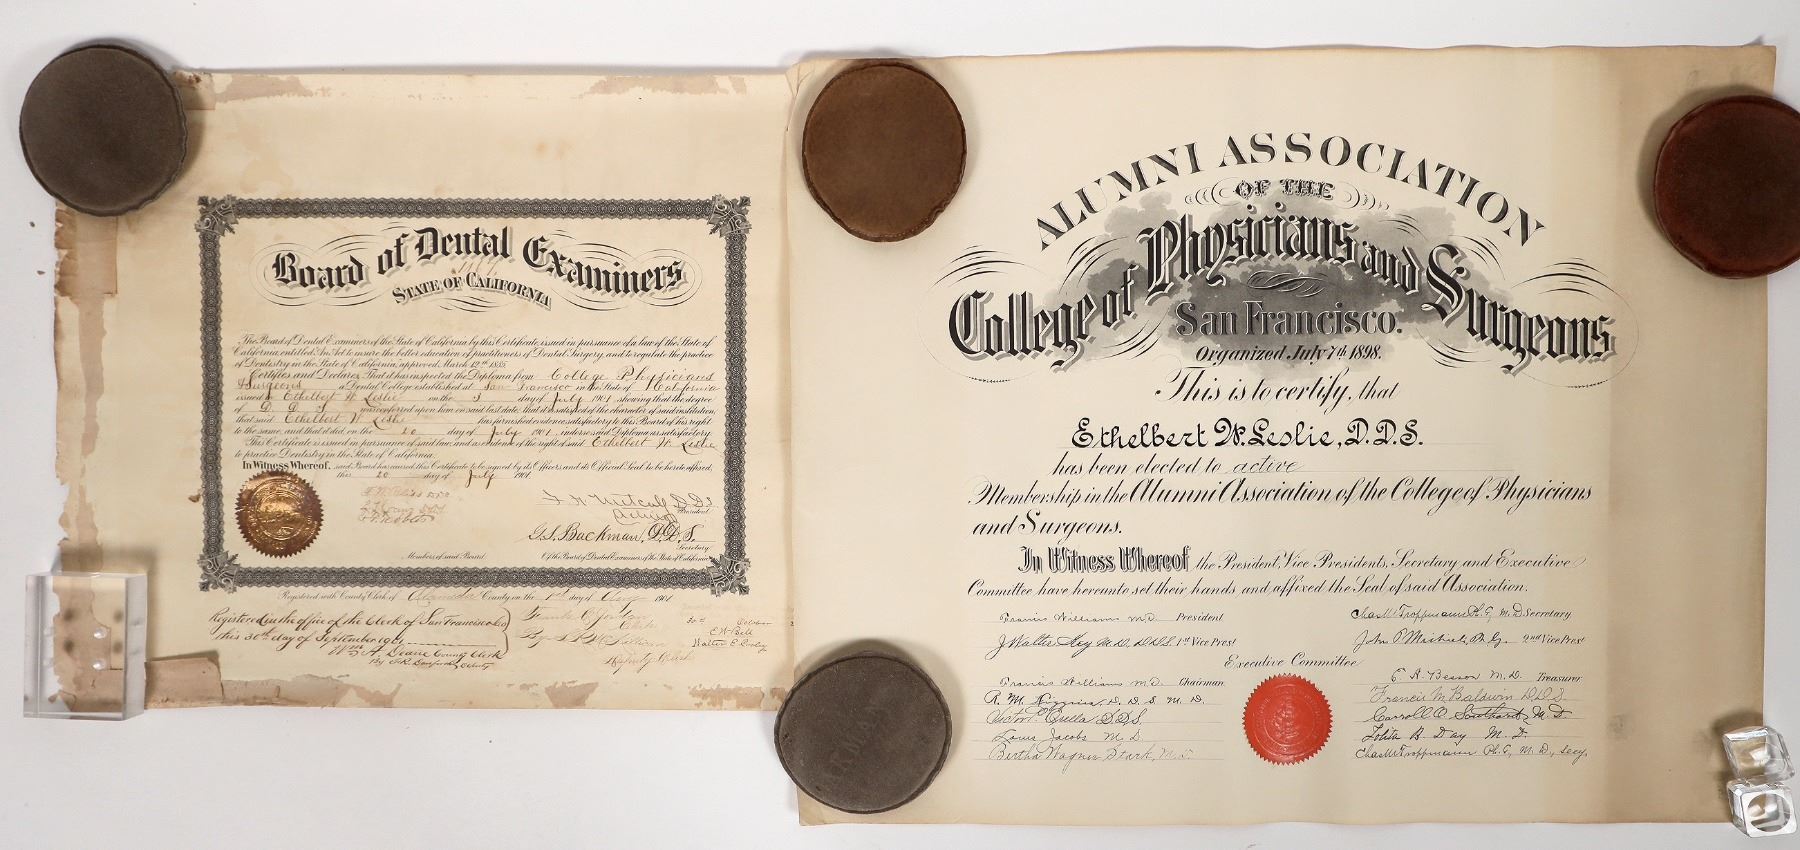 Board of Dental Examiners
STATE OF CALIFORNIA
The Board of Dental Examiners of the State of California by this Certificate, issued in pursuance of a law of the State of
California, entitled An Act to insure the better education of practitioners of Dental Surgery, and to regulate the practice
of Dentistry in the State of California, approved March 12th 1885.
Certifies and Declares, That it has inspected the Diploma from College Physicians
& Surgeons a Dental College established at San Francisco in the State of California
issued to Ethelbert W Leslie on the 3 day of July 1901 showing that the degree
of D. D. S was conferred upon him on said last date, that it is satisfied of the character of said institution,
that said Ethelbert W Leslie has furnished evidence satisfactory to this Board of his right
to the same, and that it did on the 20 day of July 1901, indorse said Diploma as satisfactory.
This Certificate is issued in pursuance of said law, and is evidence of the right of said Ethelbert W Leslie
to practice Dentistry in the State of California.
In Witness Whereof, said Board has caused this Certificate to be signed by its Officers, and its Official Seal to be hereto affixed,
this 20 day of July 1901.
F. H. Metcalf D.D.S
President
G.S. Backman, D.D.S.
Secretary
Members of said Board
Of the Board of Dental Examiners of the State of California
Registered with County Clerk of Alameda County on the 1st day of Aug 1901
Registered in the office of the Clerk of San Francisco Co
this 30th day of September 1901
Wm. A. Deane County Clerk
By Deputy
Deputy Clerk
E. W. Bell
Walter E.
ALUMNI ASSOCIATION
OF THE
College of Physicians and Surgeons
San Francisco.
Organized July 7th 1898.
This is to certify, that
Ethelbert W. Leslie, D.D.S.
has been elected to active
Membership in the Alumni Association of the College of Physicians
and Surgeons.
In Witness Whereof the President, Vice Presidents, Secretary and Executive
Committee have hereunto set their hands and affixed the Seal of said Association.
Francis Williams M.D. President
Chas M Troppmann Ph.G, M.D Secretary
J Walter Key M.D, D.D.S. 1st Vice Prest
John P Michiels, Ph.G. 2nd Vice Prest
Executive Committee
Francis Williams M.D. Chairman
E. A. Besson M.D. Treasurer
R. M. D.D.S M.D.
Francis M Baldwin D.D.S.
Victor D.D.S.
Carroll O. Southard, M.D.
Louis Jacobs M D
Lolita B Day M.D.
Bertha Wagner Stark, M.D.
Chas M Troppmann Ph.G, M.D, Secy,